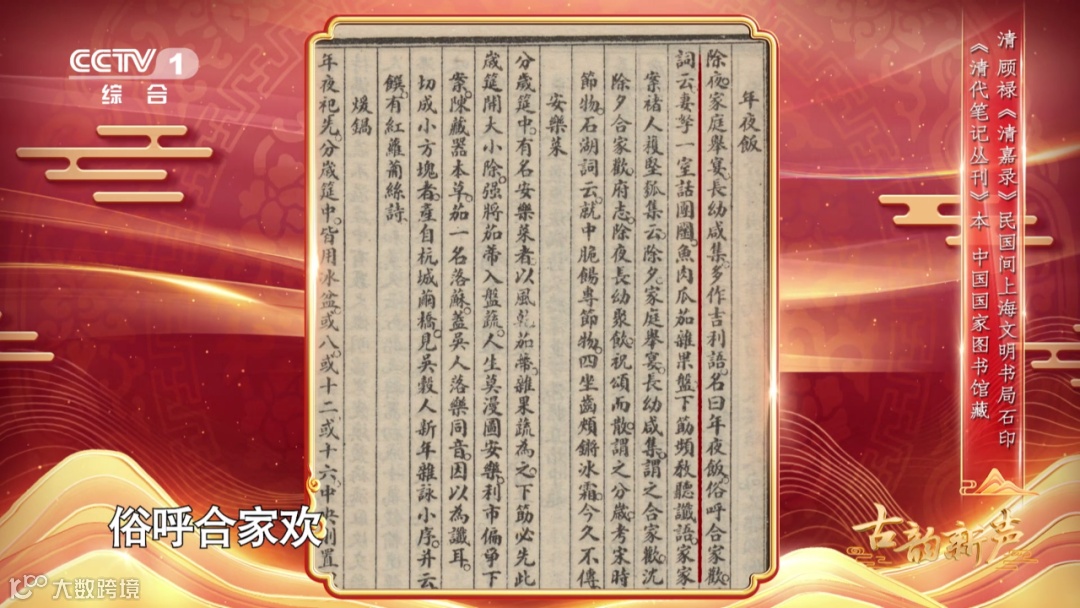 CCTV 1
综合
年夜飯
除夜家庭舉宴長幼咸集多作吉利語名曰年夜飯俗呼合家歡
詞云妻孥一室話團圞魚肉瓜茄雜果盤下筯頻教聽讖語家家
案褚人穫堅瓠集云除夕家庭舉宴長幼咸集謂之合家歡沈
除夕合家歡府志除夜長幼聚飲祝頌而散謂之分歲考宋時
節物石湖詞云就中脆餳專節物四坐齒頰鏘冰霜今久不傳
安樂菜
分歲筵中有名安樂菜者以風乾茄蒂雜果蔬為之下筯必先此
歲筵開大小除强將茄蒂入盤蔬人生莫漫圖安樂利市偏爭下
案陳藏器本草茄一名落蘇蓋吳人落樂同音因以為讖耳
切成小方塊者產自杭城繭橋見吳穀人新年雜詠小序并云
饌有紅蘿蔔絲詩
煖鍋
年夜祀先分歲筵中皆用冰盆或八或十二或十六中央則置
清 顾禄《清嘉录》民国间上海文明书局石印
《清代笔记丛刊》本 中国国家图书馆藏
俗呼合家欢
古韵新声
大数跨境